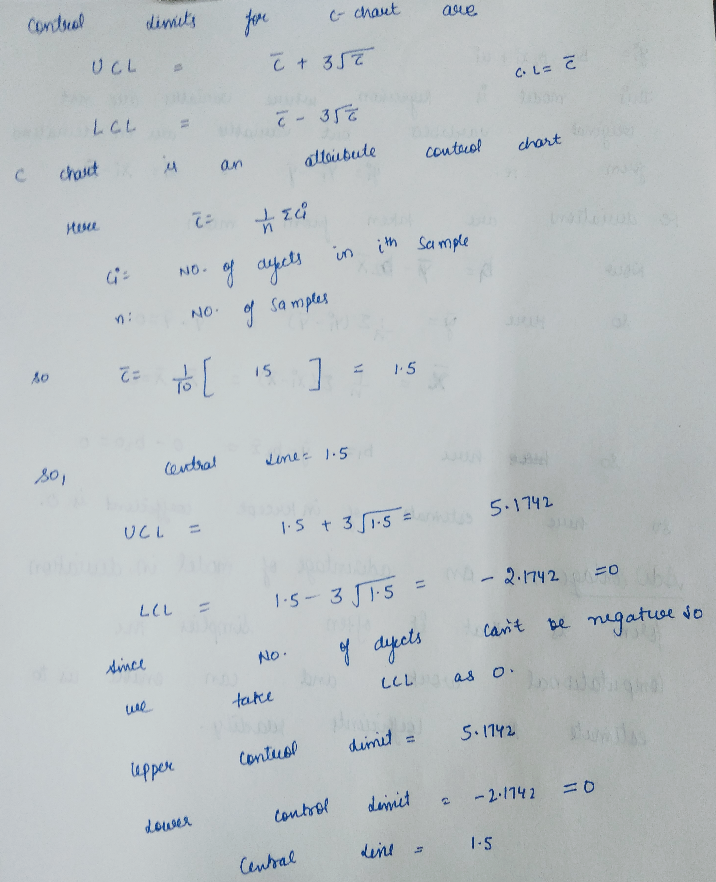 Control limits for c-chart are
UCL = c̄ + 3√c̄ C.L = c̄
LCL = c̄ - 3√c̄
C chart is an attribute control chart
Here c̄ = 1/n Σci
ci = NO. of defects in ith sample
n: NO. of samples
so c̄ = 1/10 [ 15 ] = 1.5
so, Central line = 1.5
UCL = 1.5 + 3√1.5 = 5.1742
LCL = 1.5 - 3√1.5 = - 2.1742 = 0
since No. of defects can't be negative so
we take LCL as 0.
Upper Control limit = 5.1742
Lower control limit = -2.1742 = 0
Central line = 1.5